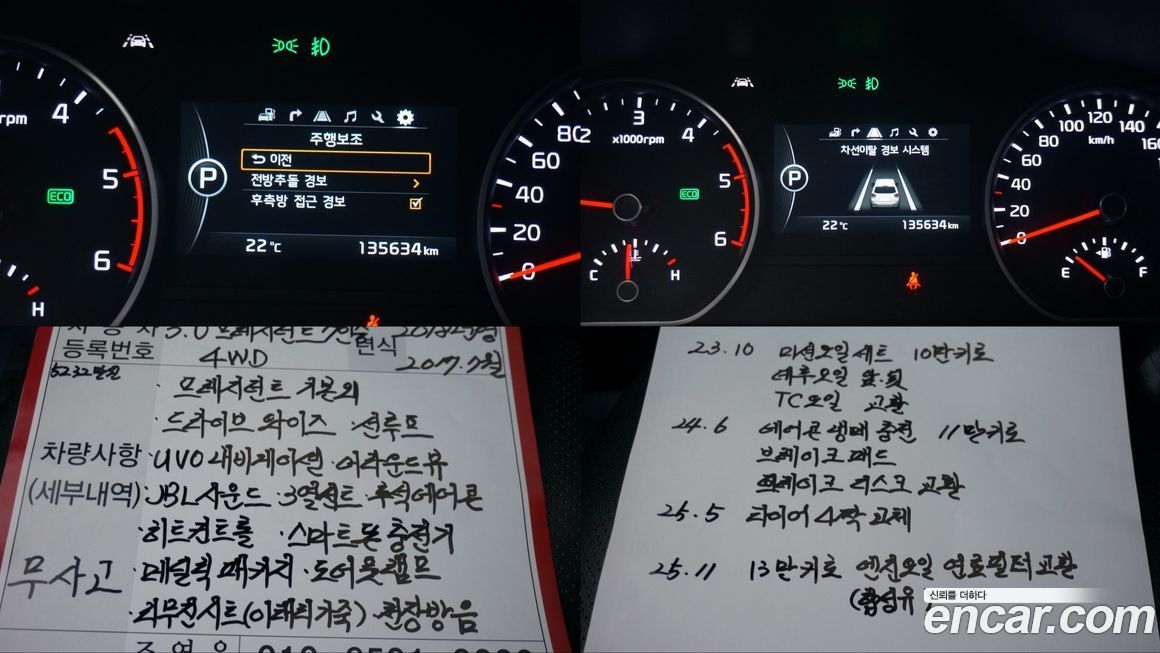 rpm
4
5
6
H
ECO
주행보조
이전
전방추돌 경보
후측방 접근 경보
P
22℃ 135634km
80
60
40
20
0
2
3
4
5
6
x1000rpm
ECO
C H
차선이탈 경보 시스템
P
22℃ 135634km
0
20
40
60
80
100
120
140
160
km/h
E F
3.0 프레지던트 7인승 2018년형
등록번호 4WD 연식 2017.7월
5232만원
· 프레지던트 기본외
· 드라이브 와이즈 · 선루프
차량사항 · UVO 내비게이션 · 어라운드뷰
(세부내역) · JBL사운드 · 3열시트 · 후석에어콘
· 히트컨트롤 · 스마트폰충전기
무사고 · 메탈릭 패키지 · 도어풋램프
· 리무진시트(이태리가죽) · 천장방음
23.10 미션오일세트 10만키로
데후오일 앞.뒤
TC오일 교환
24.6 에어콘 냉매 충전 11만키로
브레이크패드
브레이크 디스크 교환
25.5 타이어 4짝 교체
25.11 13만키로 엔진오일 연료필터교환
(합성유)
신뢰를 더하다
encar.com